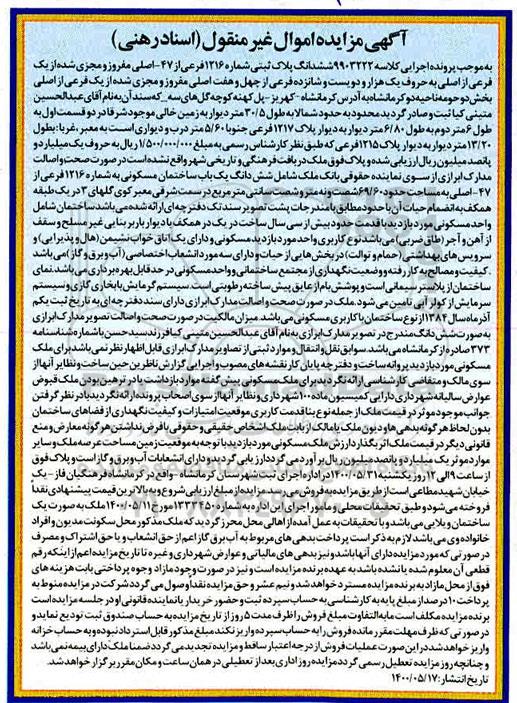 آگهی مزایده اموال غیر منقول (اسناد رهنی)
به موجب پرونده اجرایی کلاسه ۹۹۰۳۲۲۲ ششدانگ پلاک ثبتی شماره ۱۲۱۶ فرعی از ۴۷-اصلی مفروز و مجزی شده از یک
فرعی از اصلی به حروف یک هزار و دویست و شانزده فرعی از چهل و هفت اصلی مفروز و مجزی شده از یک فرعی از اصلی
بخش دو حومه ناحیه دو کرمانشاه به آدرس کرمانشاه - کهریز - پل کهنه کوچه گل های سه _ که سند آن به نام آقای عبدالحسین
متینی کیا ثبت و صادر گردید محدود به حدود شمالا به طول ۳۰/۵ متر دیوار به زمین خالی موجود شرقا در دو قسمت اول به
طول ۶ متر دوم به طول ۶/۸۰ متر دیوار به دیوار پلاک ۱۲۱۷ فرعی جنوبا ۵/۶۰ متر درب و دیواری است به معبر، غربا: بطول
۱۳/۲۰ متر دیوار به دیوار پلاک ۱۲۱۵ فرعی که طبق نظر کارشناس رسمی به مبلغ ۱/۵۰۰/۰۰۰/۰۰۰ ریال به حروف یک میلیارد و
پانصد میلیون ریال ارزیابی شده و پلاک فوق ملک در بافت فرهنگی و تاریخی شهر واقع نشده است در صورت صحت و اصالت
مدارک ابرازی از سوی نماینده حقوقی بانک ملک شامل شش دانگ یک باب ساختمان مسکونی به شماره ۱۲۱۶ فرعی از
۴۷-اصلی به مساحت حدود ۶۹/۶۰ شصت و نه متر و شصت سانتی متر مربع در سمت شرقی معبر کوی گلهای ۳ در یک طبقه
همکف به انضمام حیات آن با حدود مطابق با مندرجات پشت تصویر سند تک دفترچه ای ارائه شده می باشد ساختمان شامل
واحد مسکونی مورد بازدید با قدمت حدود بیش از سی سال ساخت در یک در همکف با دیوار باربر بنایی غیر مسلح و سقف
از آهن و آجر (طاق ضربی) می باشد نوع کاربری واحد مورد بازدید مسکونی و دارای یک اتاق خواب نشیمن (هال و پذیرایی) و
سرویس های بهداشتی (حمام و توالت) در بخش هایی از حیات و دارای سه مورد انشعاب اختصاصی (آب و برق و گاز) می باشد
. کیفیت و مصالح به کار رفته و وضعیت نگهداری از مجتمع ساختمانی و واحد مسکونی در حد قابل بهره برداری می باشد. نمای
ساختمان از پلاستر سیمانی است و پوشش بام از عایق پیش ساخته رطوبتی است. سیستم گرمایش با بخاری گازی و سیستم
سرمایش از کولر آبی تامین می شود. ملک در صورت صحت و اصالت مدارک ابرازی دارای سند دفترچه ای به تاریخ ثبت یکم
آذر ماه سال ۱۳۸۴ از نوع ساختمان با کاربری مسکونی می باشد. میزان مالکیت در صورت صحت و اصالت تصویر مدارک ابرازی
به صورت شش دانگ مندرج در تصویر مدارک ابرازی به نام آقای عبدالحسین متینی کیا فرزند سید حسن با شماره شناسنامه
۳۷۳ صادره از کرمانشاه می باشد. سوابق نقل و انتقال و موارد ثبتی از تصاویر مدارک ابرازی قابل اظهار نظر نمی باشد برای ملک
مسکونی مورد بازدید پروانه ساخت و دفترچه پایان کار نقشه های مصوب و اجرایی گزارش ناظرین حین ساخت و نظایر آنها از
سوی مالک و متقاضی کارشناسی ارائه نگردید برای ملک مسکونی پیش گفته موارد بازداشت یا در ترهین بودن ملک قبوض
عوارض سالیانه شهرداری درایی کمیسیون ماده ۱۰۰ شهرداری و نظایر آنها از سوی اصحاب پرونده ارائه نگردید با در نظر گرفتن
جوانب موجود موثر در قیمت ملک از جمله نوع بنا قدمت کاربری موقعیت امتیازات و کیفیت نگهداری از فضاهای ساختمان
بدون لحاظ هر گونه بدهی ها و دیون ملک یا مالک از بابت ملک اشخاص حقیقی و حقوقی با فرض نداشتن هر گونه معارض و منع
قانونی دیگر در قیمت ملک اثر بگذارد ارزش ملک مسکونی مورد بازدید با توجه به موقعیت زمین مساحت عرصه ملک و سایر
موارد موثر یک میلیارد و پانصد میلیون ریال برآورد می گردد ارزیابی گردید و دارای انشعابات آب و برق و گاز است و پلاک فوق
از ساعت ۹ الی ۱۲ روز یکشنبه ۱۴۰۰/۰۵/۳۱ در اداره اجرای ثبت شهرستان کرمانشاه - واقع در کرمانشاه فرهنگیان فاز - یک
خیابان شهید مطاعی است از طریق مزایده به فروش می رسد. مزایده از مبلغ ارزیابی شروع و به بالاترین قیمت پیشنهادی نقدا
فروخته می شود و طبق تحقیقات محلی و مامور اجرای این اداره به شماره ۱۳۲۷۰ مورخ ۱۴۰۰/۰۵/۱۱ ملک به صورت یک
ساختمان ویلایی می باشد و با تحقیقات به عمل آمده از اهالی محل محرز گردید که ملک مذکور محل سکونت مدیون و افراد
خانواده وی می باشد لازم به ذکر است پرداخت بدهی های مربوط به آب برق گاز اعم از حق انشعاب و یا حق اشتراک و مصرف
در صورتی که مورد مزایده دارای آنها باشد و نیز بدهی های مالیاتی و عوارض شهرداری و غیره تا تاریخ مزایده اعم از اینکه رقم
قطعی آن معلوم شده یا نشده باشد به عهده برنده مزایده است و نیز در صورت وجود مازاد وجوه پرداختی بابت هزینه های
فوق از محل مازاد به برنده مزایده مسترد خواهد شد و نیم عشر و حق مزایده نقدا وصول می گردد شرکت در مزایده منوط به
پرداخت ۱۰ درصد از مبلغ پایه به کارشناسی به حساب سپرده ثبت و حضور خریدار یا نماینده قانونی او در جلسه مزایده است
برنده مزایده مکلف است مابه التفاوت مبلغ فروش را ظرف مدت ۵ روز از تاریخ مزایده به حساب صندوق ثبت تودیع نماید و
در صورتی که ظرف مهلت مقرر مانده فروش را به حساب سپرده واریز نکند مبلغ مذکور قابل استرداد نبوده و به حساب خزانه
واریز خواهد شد در این صورت عملیات فروش از درجه اعتبار ساقط و مزایده تجدید می گردد ضمنا ملک دارای بیمه نمی باشد
و چنانچه روز مزایده تعطیل رسمی گردد مزایده روز اداری بعد از تعطیلی در همان ساعت و مکان مقرر برگزار خواهد شد.
تاریخ انتشار: ۱۴۰۰/۰۵/۱۷